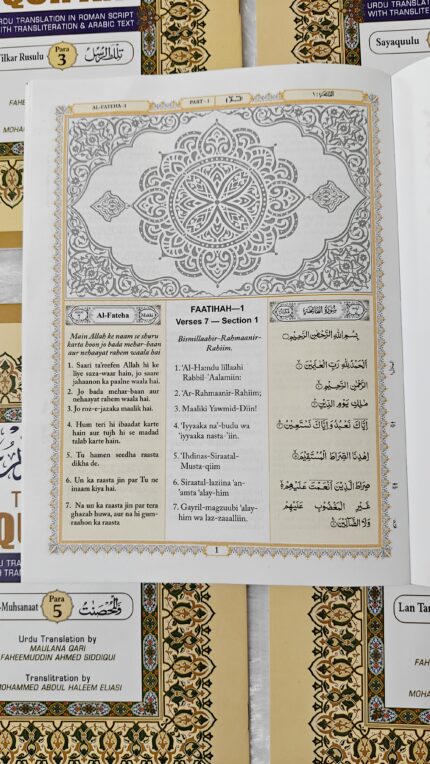 QUR'AN
URDU TRANSLATION IN ROMAN SCRIPT
WITH TRANSLITERATION & ARABIC TEXT
Tilkar Rusulu
Para
3
تِلْكَ الرُّسُلُ
URDU TRANSLATION
WITH TRANSLITERATION
Sayaquulu
FAHE
MOHA
AL-FATEHA-1
PART - 1
الٓمّٓ
الفاتحة ١
Al-Fateha
Makki
Main Allah ke naam se shuru
karta hoon jo bada mehar-baan
aur nehaayat rahem waala hai
1. Saari ta'reefen Allah hi ke
liye saza-waar hain, jo saare
jahaanon ka paalne waala hai.
2. Jo bada mehar-baan aur
nehaayat rahem waala hai.
3. Jo roz-e-jazaka maalik hai.
4. Hum teri hi ibaadat karte
hain aur tujh hi se madad
talab karte hain.
5. Tu hamen seedha raasta
dikha de.
6. Un ka raasta jin par Tu ne
inaam kiya hai.
7. Na un ka raasta jin par tera
ghazab huwa, aur na hi gum-
raahon ka raasta
FAATIHAH—1
Verses 7 — Section 1
Bismillaahir-Rahmaanir-
Rahiim.
1. 'Al-Hamdu lillaahi
Rabbil-'Aalamiin:
2. 'Ar-Rahmaanir-Rahiim;
3. Maaliki Yawmid-Diin!
4. 'Iyyaaka na'-budu wa
'iyyaaka nasta-'iin.
5. 'Ihdinas-Siraatal-
Musta-qiim
6. Siraatal-laziina 'an-
'amta 'alay-him
7. Gayril-magzuubi 'alay-
him wa laz-zaaalliin.
سُوْرَةُ الْفَاتِحَةِ
بِسْمِ اللّٰهِ الرَّحْمٰنِ الرَّحِيْمِ
اَلْحَمْدُ لِلّٰهِ رَبِّ الْعٰلَمِيْنَ
الرَّحْمٰنِ الرَّحِيْمِ
مٰلِكِ يَوْمِ الدِّيْنِ
اِيَّاكَ نَعْبُدُ وَاِيَّاكَ نَسْتَعِيْنُ
اِهْدِنَا الصِّرَاطَ الْمُسْتَقِيْمَ
صِرَاطَ الَّذِيْنَ اَنْعَمْتَ عَلَيْهِمْ
غَيْرِ الْمَغْضُوْبِ عَلَيْهِمْ
وَلَا الضَّآلِّيْنَ
1
-Muhsanaat
Para
5
وَالْمُحْصَنٰتُ
Urdu Translation by
MAULANA QARI
FAHEEMUDDIN AHMED SIDDIQUI
Translitration by
MOHAMMED ABDUL HALEEM ELIASI
Lan Tan
FAH
MOHA